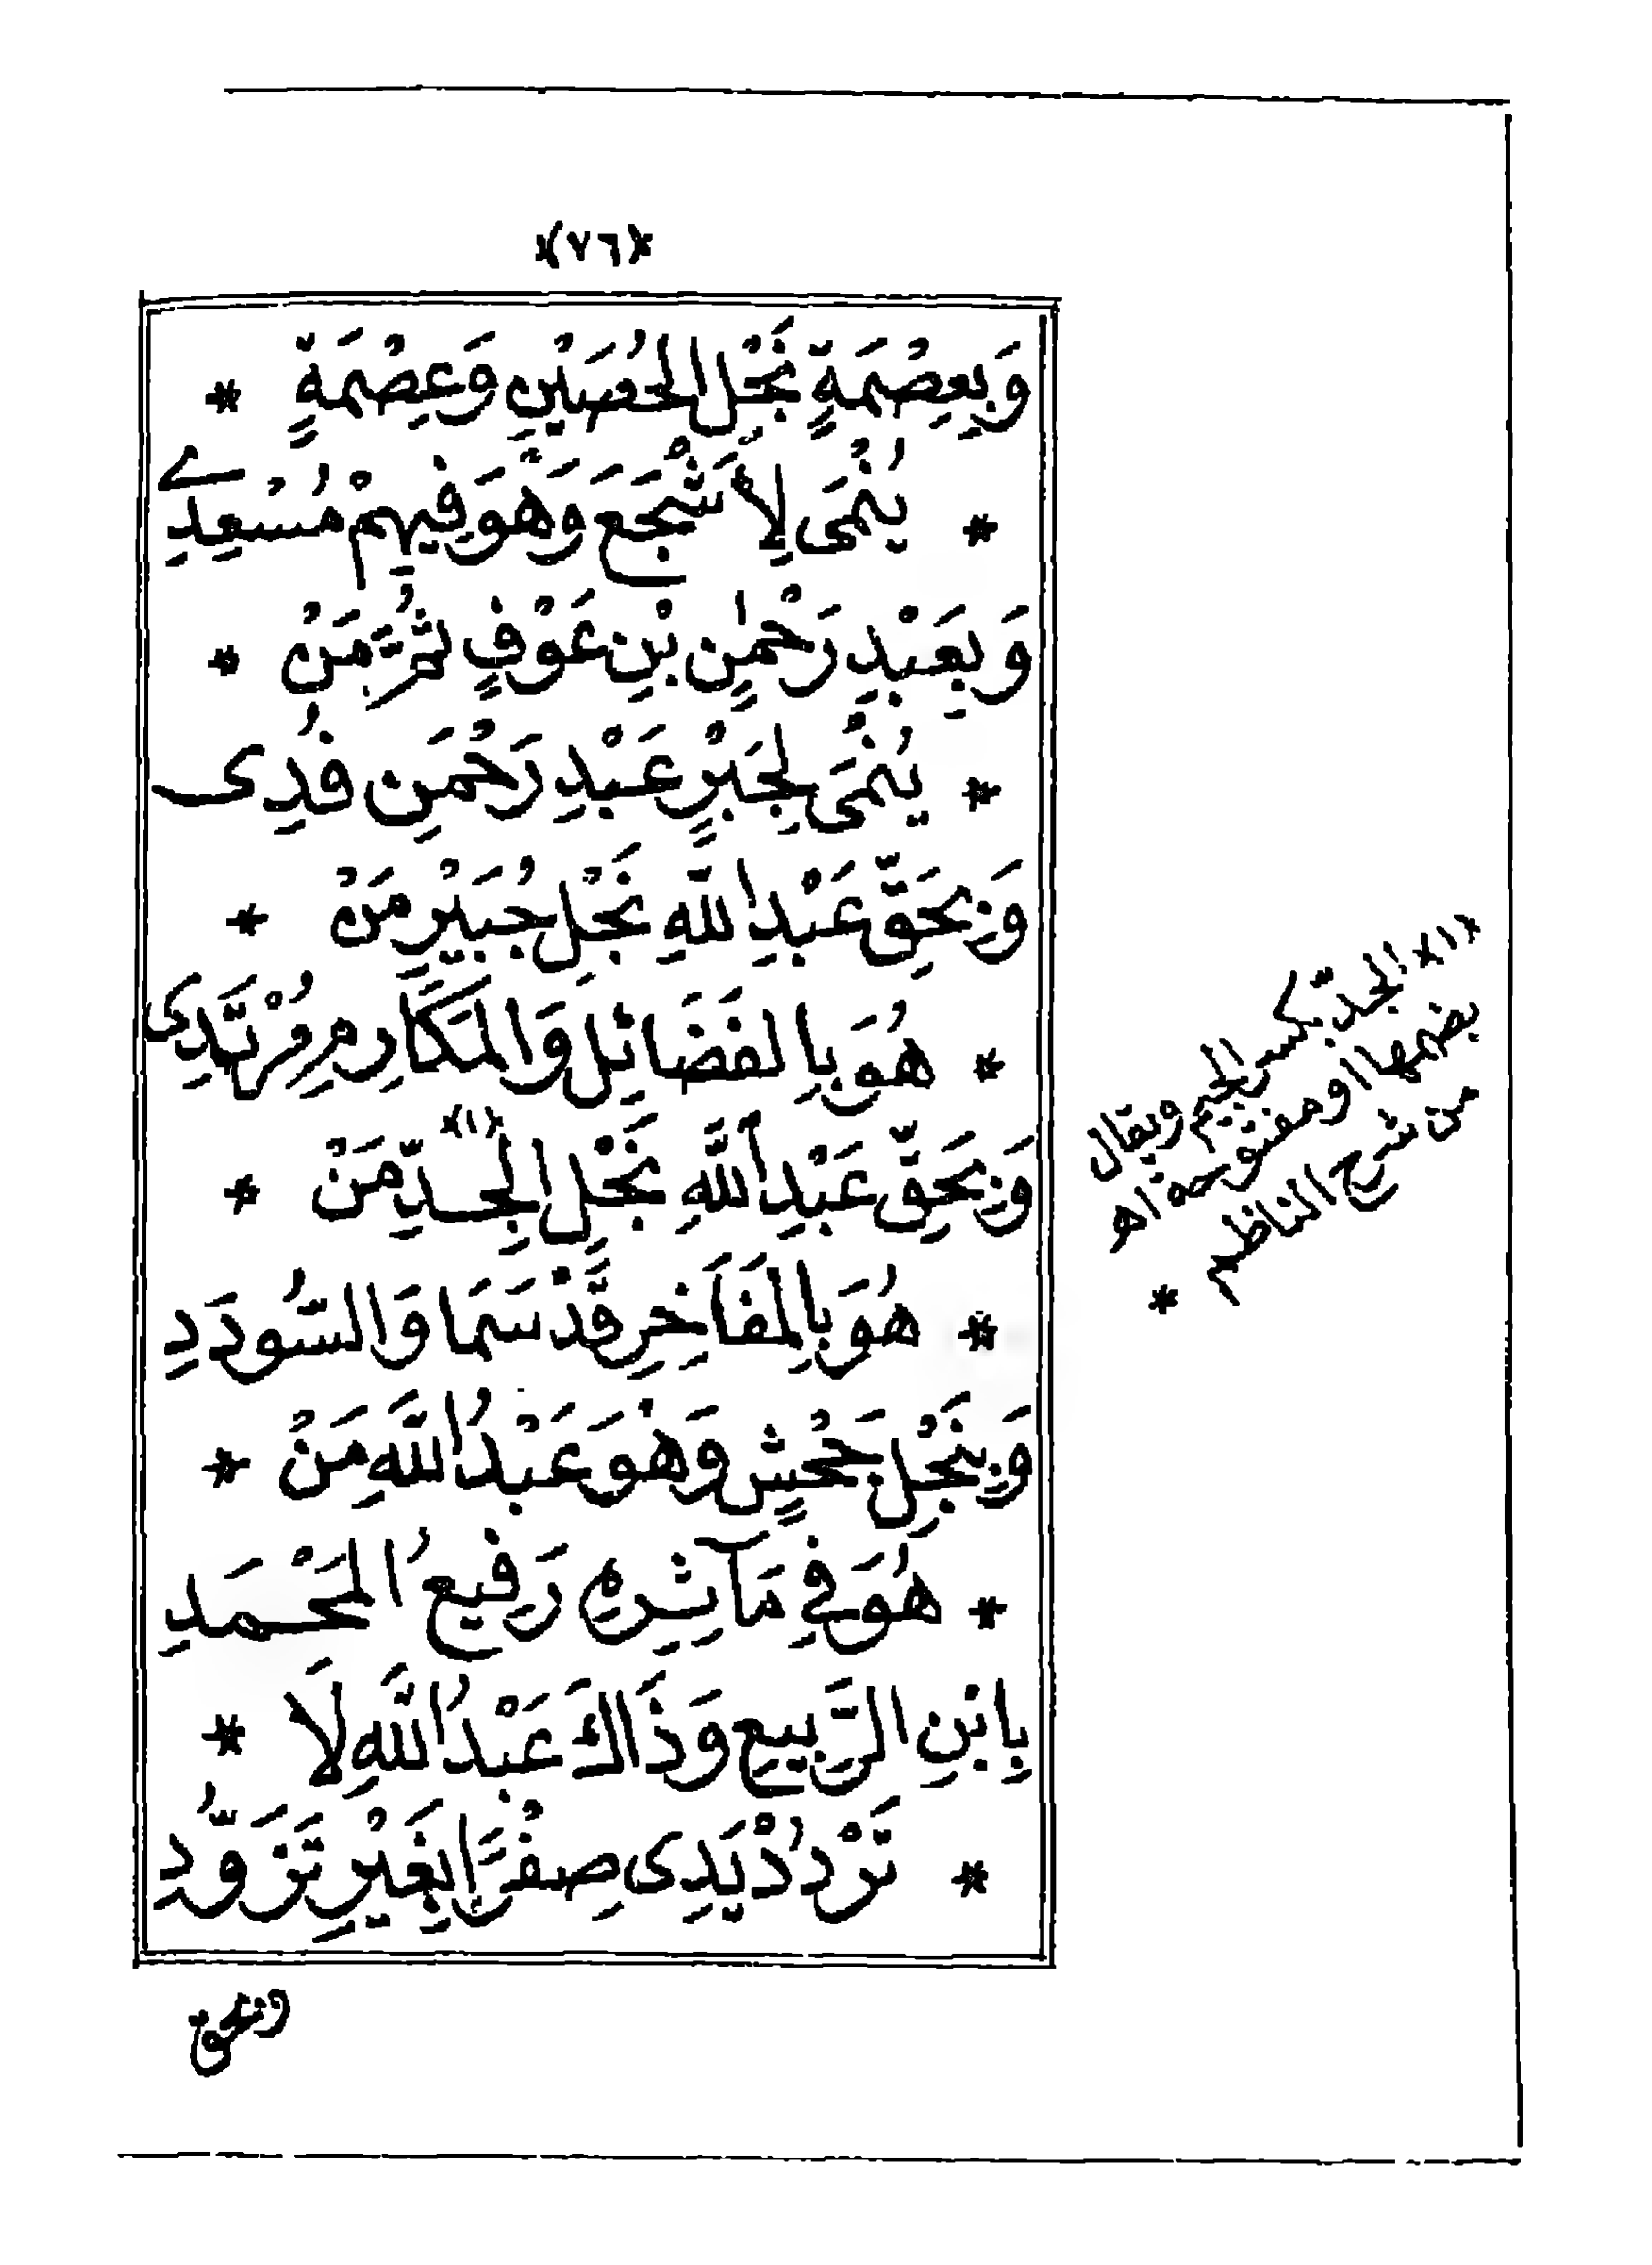 ﴿٧٦﴾
وَبِعِصْمَةٍ نَجْلِ الحُصَيْنِ وَعِصْمَةٍ *
* يُنْمَى لِأَشْجَعَ وَهْوَ فِيهِمْ مُسْعِدِے
وَبِعَبْدِ رَحْمٰنِ بْنِ عَوْفٍ ثُمَّ مَنْ *
* يُنْمَى لِجَبْرٍ عَبْدِ رَحْمَنِ فُدِى
وَبِحَقِّ عَبْدِ اللهِ نَجْلِ جُبَيْرٍ مَنْ *
* هُوَ بِالفَضَائِلِ وَالمَكَارِمِ مُرْتَدِى
وَبِحَقِّ عَبْدِ اللهِ نَجْلِ الجِدِّ (١) مَنْ *
* هُوَ بِالمَفَاخِرِ قَدْ سَمَا وَالسُّودَدِ
وَبِنَجْلِ جَحْشٍ وَهْوَ عَبْدُ اللهِ مَنْ *
* هُوَ فِي مَآثِرِهِ رَفِيعُ المَحْمَدِ
بِابْنِ الرَّبِيعِ وَذَاكَ عَبْدُ اللهِ لَا *
* تَرْدُدْ يَدِى صِفْرًا بِغَيْرِ تَزَوُّدِ
وبحق
(١) الجد بكسر الجيم ويقال
بضمها او مفتوحة اه
من شرح الناظم *